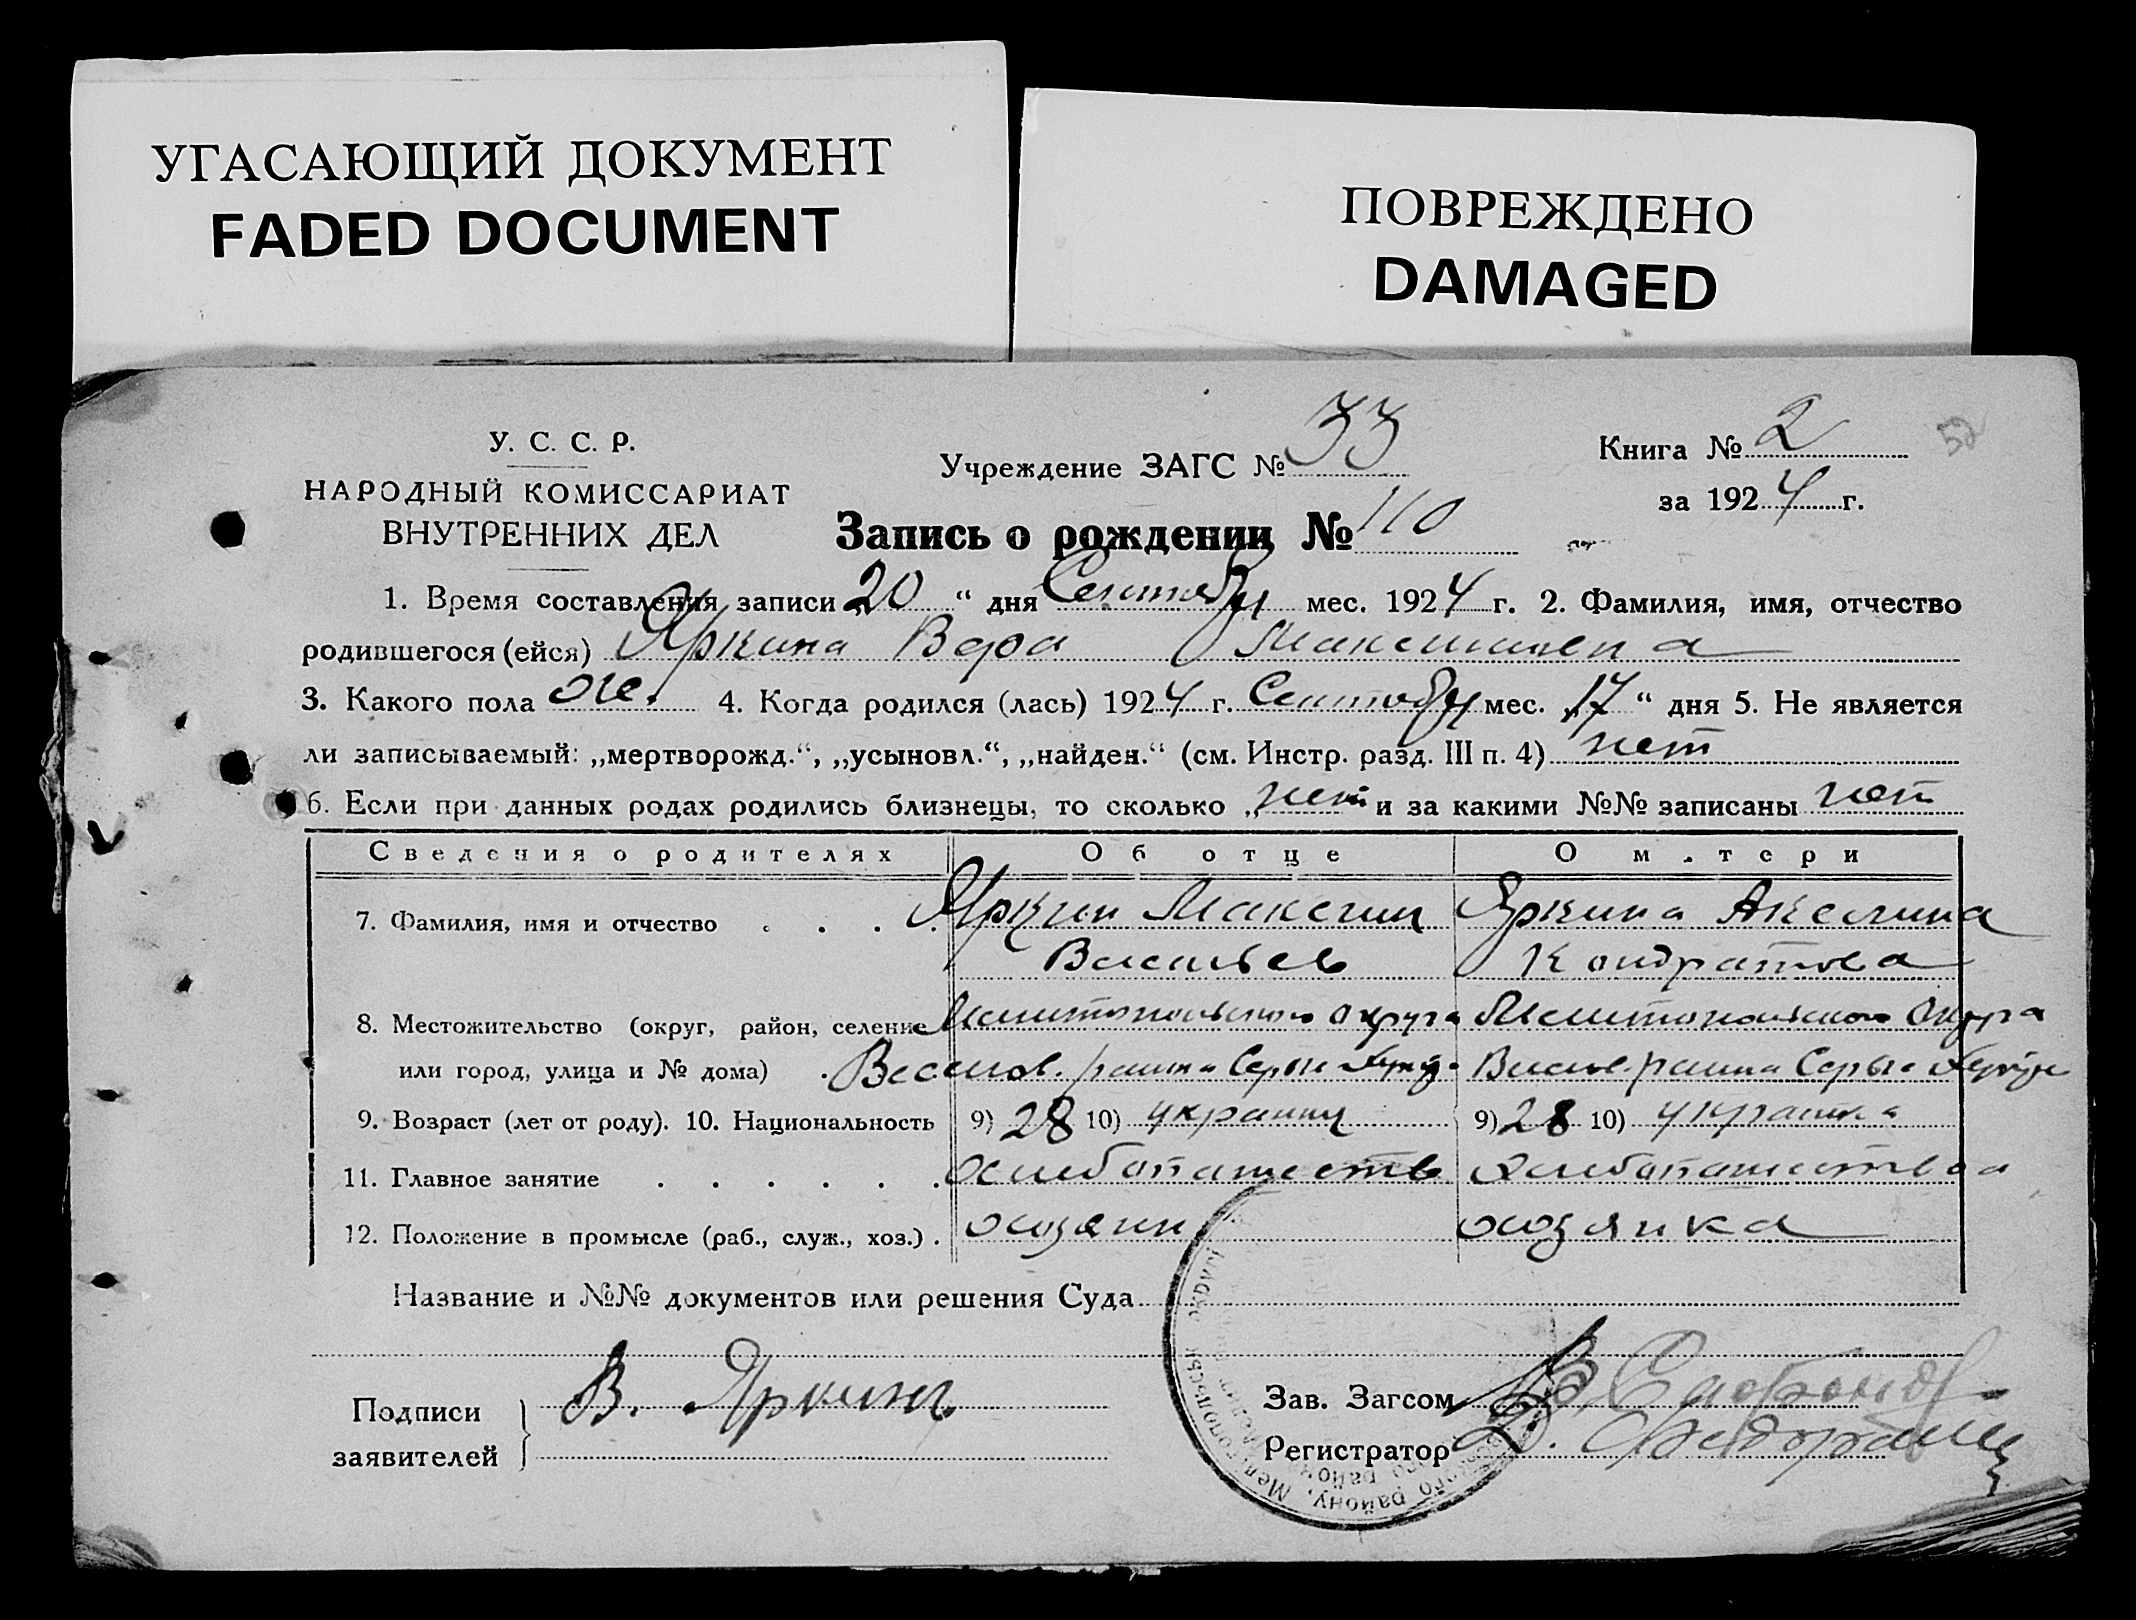 УГАСАЮЩИЙ ДОКУМЕНТ
FADED DOCUMENT
ПОВРЕЖДЕНО
DAMAGED
У. С. С. Р.
НАРОДНЫЙ КОМИССАРИАТ
ВНУТРЕННИХ ДЕЛ
Учреждение ЗАГС № 33
Книга № 2
52
за 1924 г.
Запись о рождении № 110
1. Время составления записи „20“ дня Сентябр мес. 1924 г. 2. Фамилия, имя, отчество
родившегося (ейся) Яркина Вера Максимовна
3. Какого пола ж. 4. Когда родился (лась) 1924 г. Сентябр мес. „17“ дня 5. Не является
ли записываемый: „мертворожд.“, „усыновл.“, „найден.“ (см. Инстр. разд. III п. 4) нет
6. Если при данных родах родились близнецы, то сколько „нет и за какими №№ записаны нет
Сведения о родителях Об отце О матери
7. Фамилия, имя и отчество . . . Яркин Максим Яркина Акелина
Васильев Кондратова
8. Местожительство (округ, район, селение Мелитопольского округа Мелитопольского Округа
или город, улица и № дома) . Веселов. раина Серы Весел. раина Серы
9. Возраст (лет от роду). 10. Национальность 9) 28 10) украинц 9) 28 10) украинка
11. Главное занятие . . . . . . хлебопашеств хлебопашества
12. Положение в промысле (раб., служ., хоз.) . хозяин хозяйка
Название и №№ документов или решения Суда
Подписи
заявителей
В. Яркинъ
Зав. Загсом
Регистратор